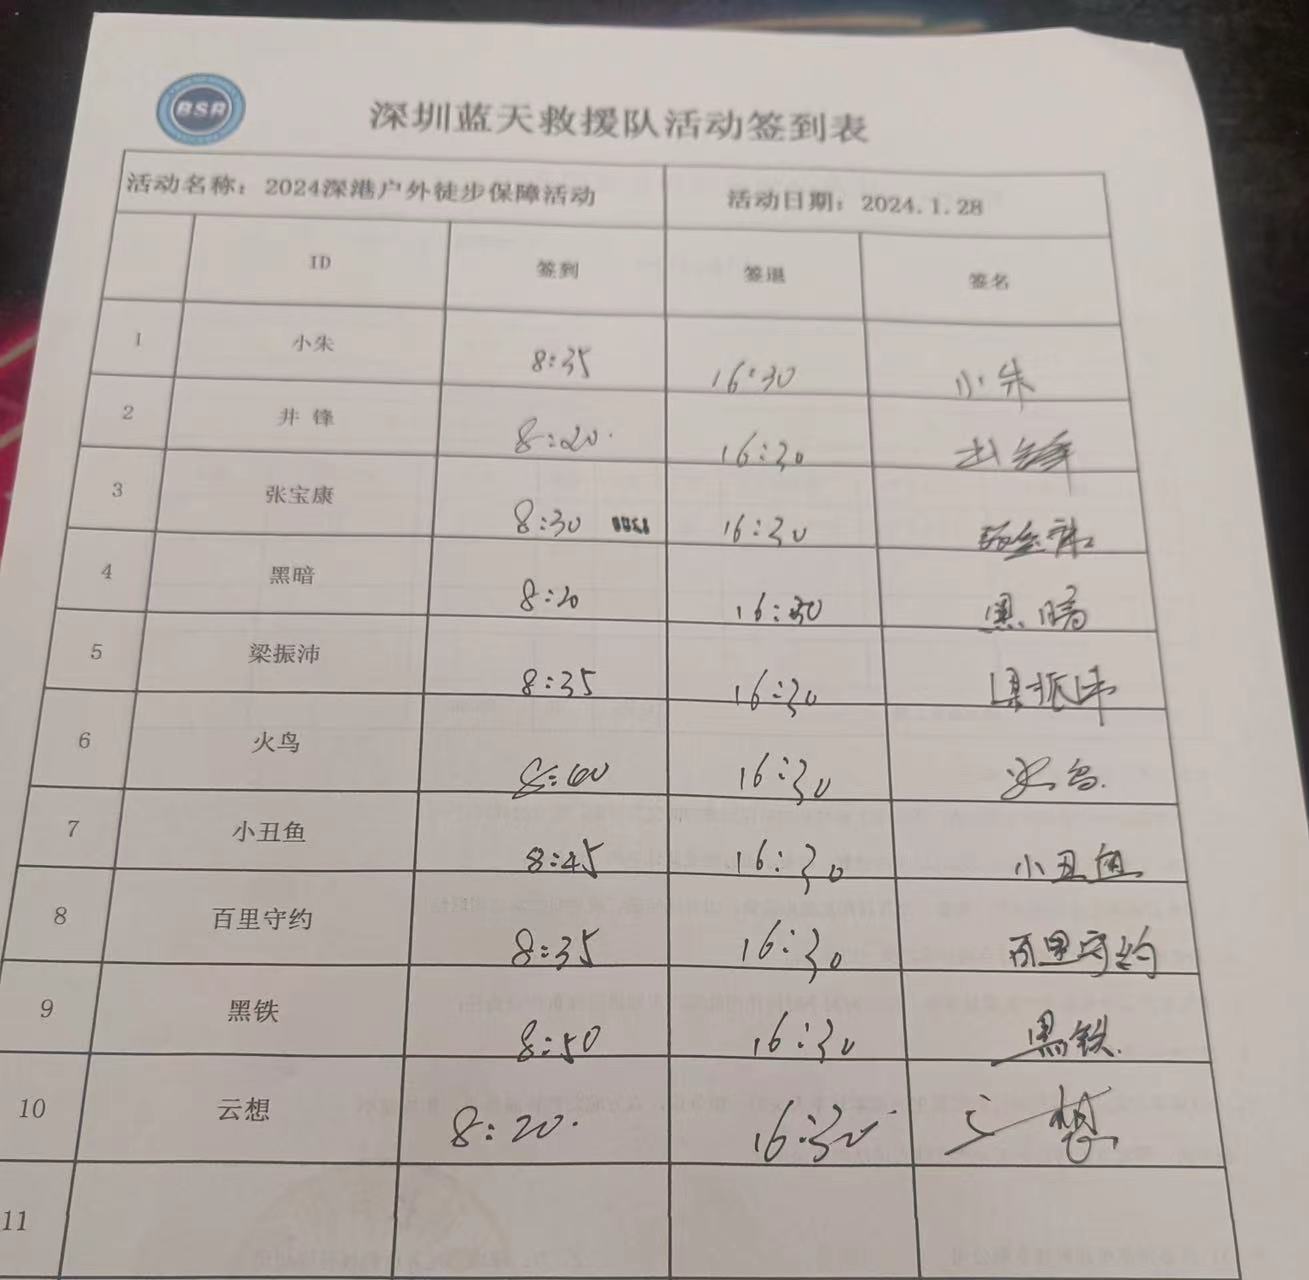 BSR
深圳蓝天救援队活动签到表
活动名称：2024深港户外徒步保障活动 活动日期：2024.1.28
ID 签到 签退 签名
1 小朱 8:35 16:30 小朱
2 井 锋 8:20 16:30 井锋
3 张宝康 8:30 16:30 张宝康
4 黑暗 8:20 16:30 黑暗
5 梁振沛 8:35 16:30 梁振沛
6 火鸟 8:00 16:30 火鸟
7 小丑鱼 8:45 16:30 小丑鱼
8 百里守约 8:35 16:30 百里守约
9 黑铁 8:50 16:30 黑铁
10 云想 8:20 16:30 云想
11